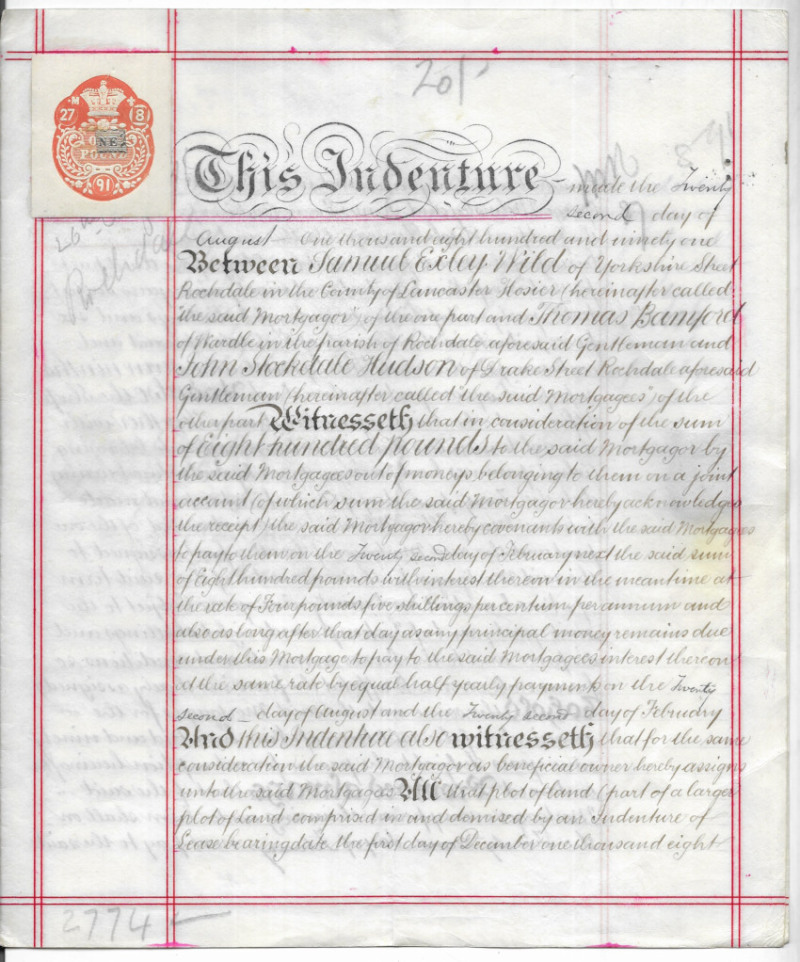 20/-
M
27 8
ONE
POUND
91
This Indenture made the Twenty
second day of
August One thousand eight hundred and ninety one
Between Samuel Exley Wild of Yorkshire Street
Rochdale in the County of Lancaster Hosier (hereinafter called
the said Mortgagor") of the one part and Thomas Bamford
of Wardle in the parish of Rochdale aforesaid Gentleman and
John Stockdale Hudson of Drake Street Rochdale aforesaid
Gentleman (hereinafter called "the said Mortgagees") of the
other part Witnesseth that in consideration of the sum
of Eight hundred pounds to the said Mortgagor by
the said Mortgagees out of moneys belonging to them on a joint
account (of which sum the said Mortgagor hereby acknowledges
the receipt) the said Mortgagor hereby covenants with the said Mortgagees
to pay to them on the Twenty second day of February next the said sum
of Eight hundred pounds with interest thereon in the meantime at
the rate of Four pounds five shillings per centum per annum and
also as long after that day as any principal money remains due
under this Mortgage to pay to the said Mortgagees interest thereon
at the same rate by equal half yearly payments on the Twenty
second day of August and the Twenty second day of February
And this Indenture also witnesseth that for the same
consideration the said Mortgagor as beneficial owner hereby assigns
unto the said Mortgagees All that plot of land (part of a larger
plot of Land comprised in and demised by an Indenture of
Lease bearing date the first day of December one thousand eight
2774